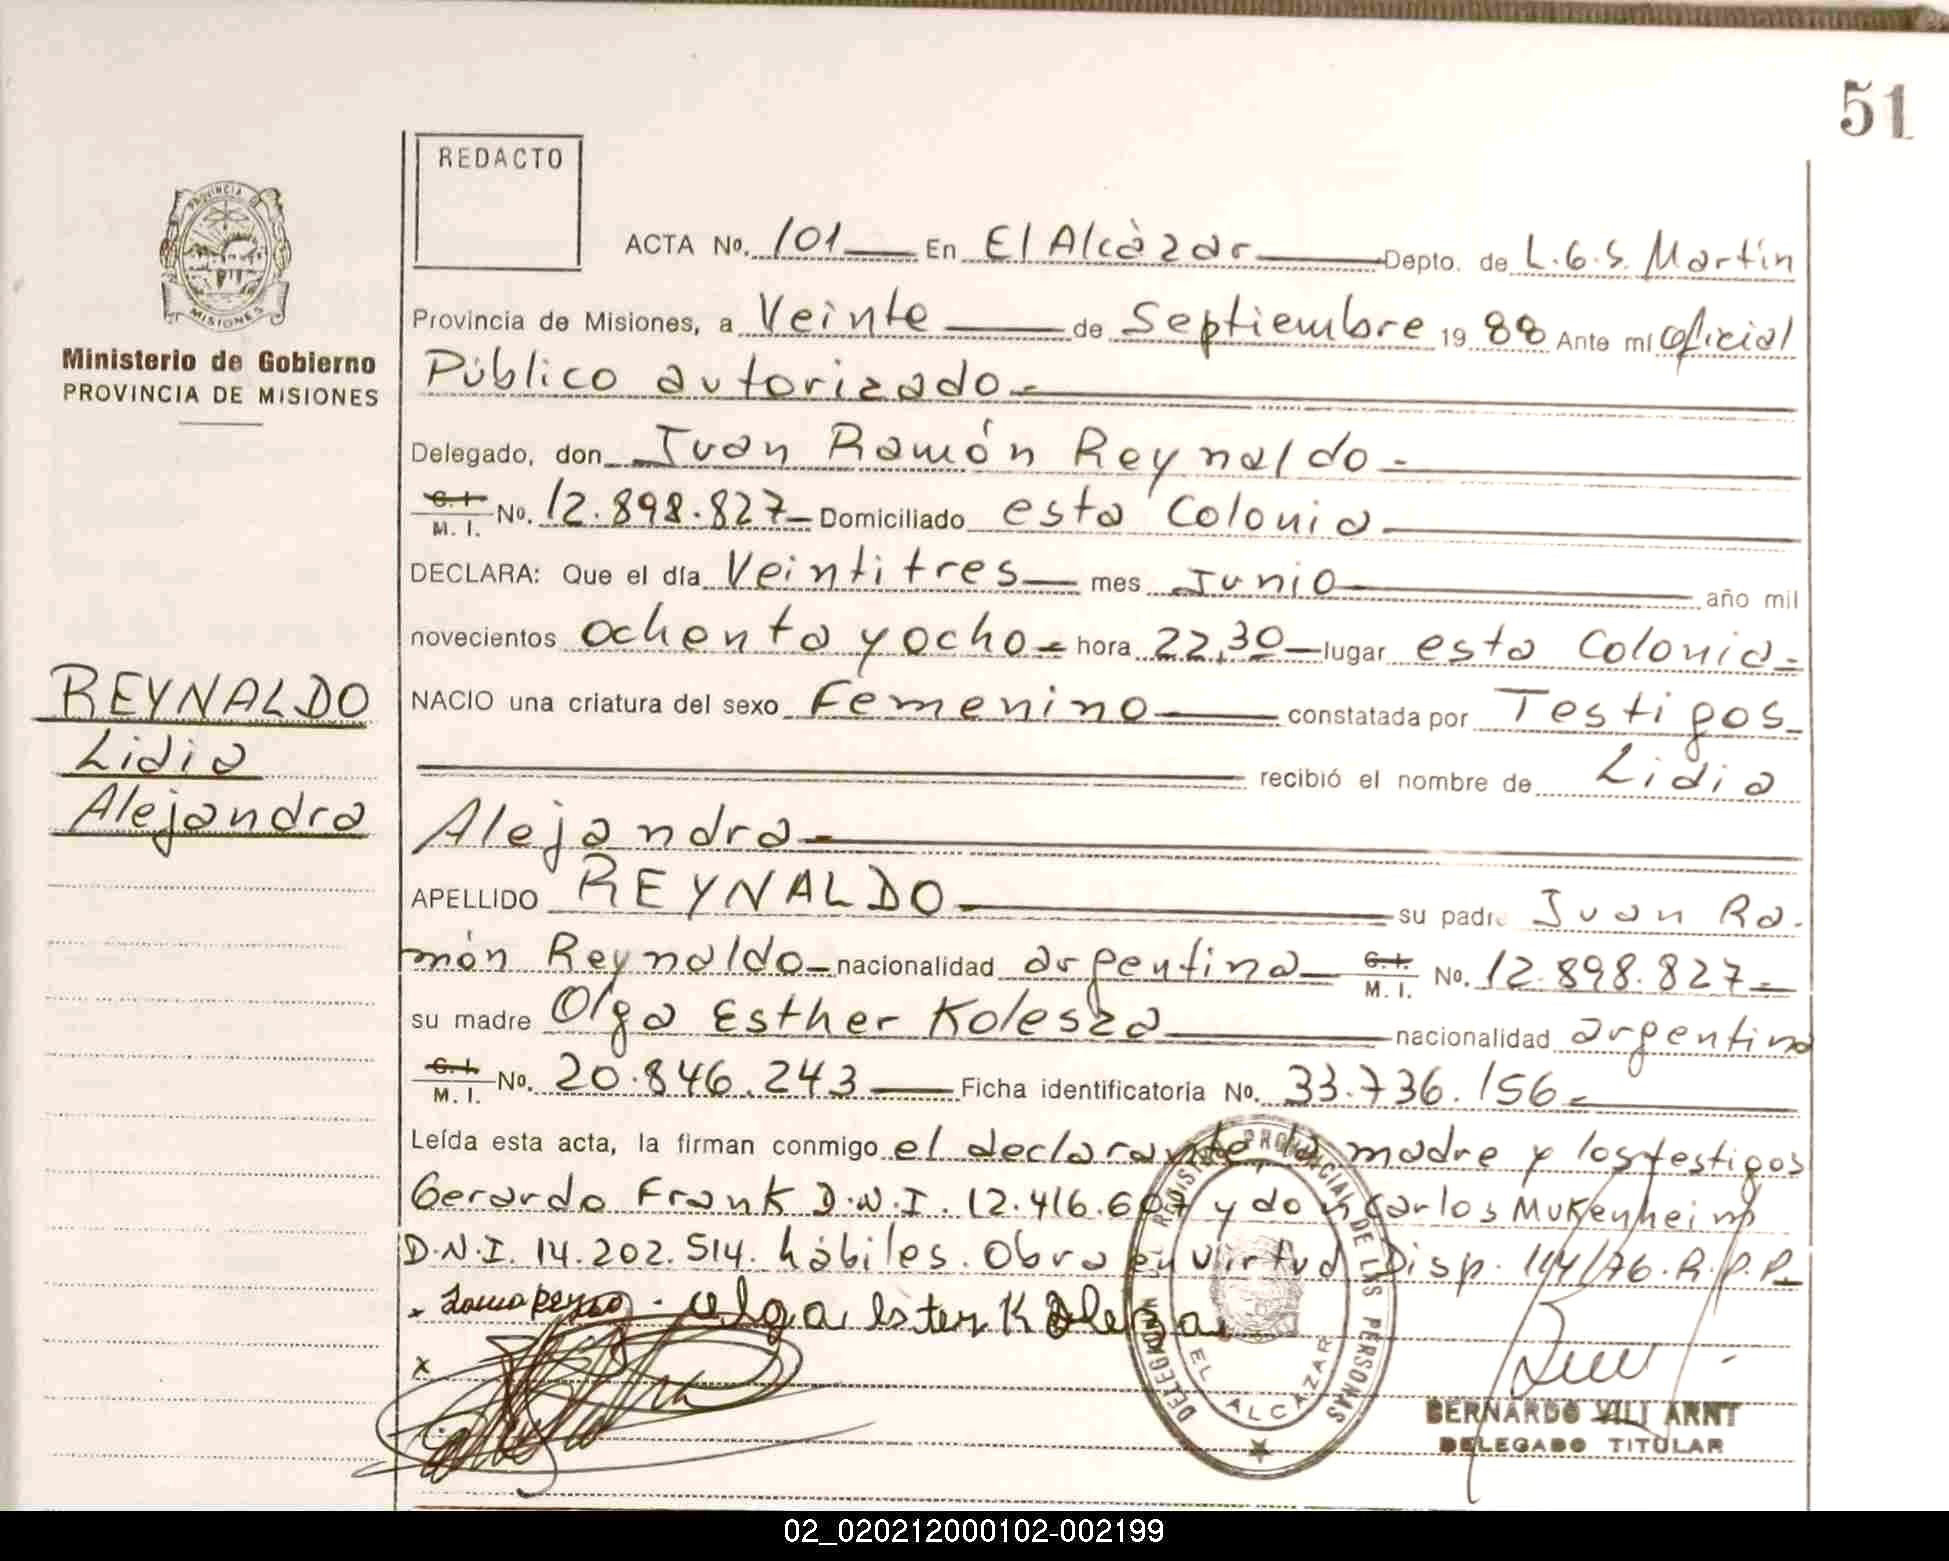 51
REDACTO
PROVINCIA DE
MISIONES
Ministerio de Gobierno
PROVINCIA DE MISIONES
ACTA No. 101 En El Alcàzar Depto. de L.G.S. Martín
Provincia de Misiones, a Veinte de Septiembre 19 88 Ante mí oficial
Público autorizado.-
Delegado, don Juan Ramón Reynaldo.-
C.I. M.I. No. 12.898.827 Domiciliado esta Colonia
DECLARA: Que el día Veintitres mes Junio año mil
novecientos ochenta y ocho hora 22,30 lugar esta Colonia-
NACIO una criatura del sexo Femenino constatada por Testigos
recibió el nombre de Lidia
Alejandra
APELLIDO REYNALDO su padre Juan Ra-
món Reynaldo nacionalidad argentina C.I. M.I. No. 12.898.827
su madre Olga Esther Kolesza nacionalidad argentina
C.I. M.I. No. 20.846.243 Ficha identificatoria No. 33.736.156.-
Leída esta acta, la firman conmigo el declarante la madre y los testigos
Gerardo Frank D.N.I. 12.416.607 y don Carlos Mukenheim
D.N.I. 14.202.514. hábiles. Obra en virtud Disp. 114/76.R.P.P.
REYNALDO
Lidia
Alejandra
olga ester
x
DELEGACION REGISTRO PROVINCIAL DE LAS PERSONAS
EL ALCAZAR
BERNARDO VILI ARNT
DELEGADO TITULAR
02_020212000102-002199